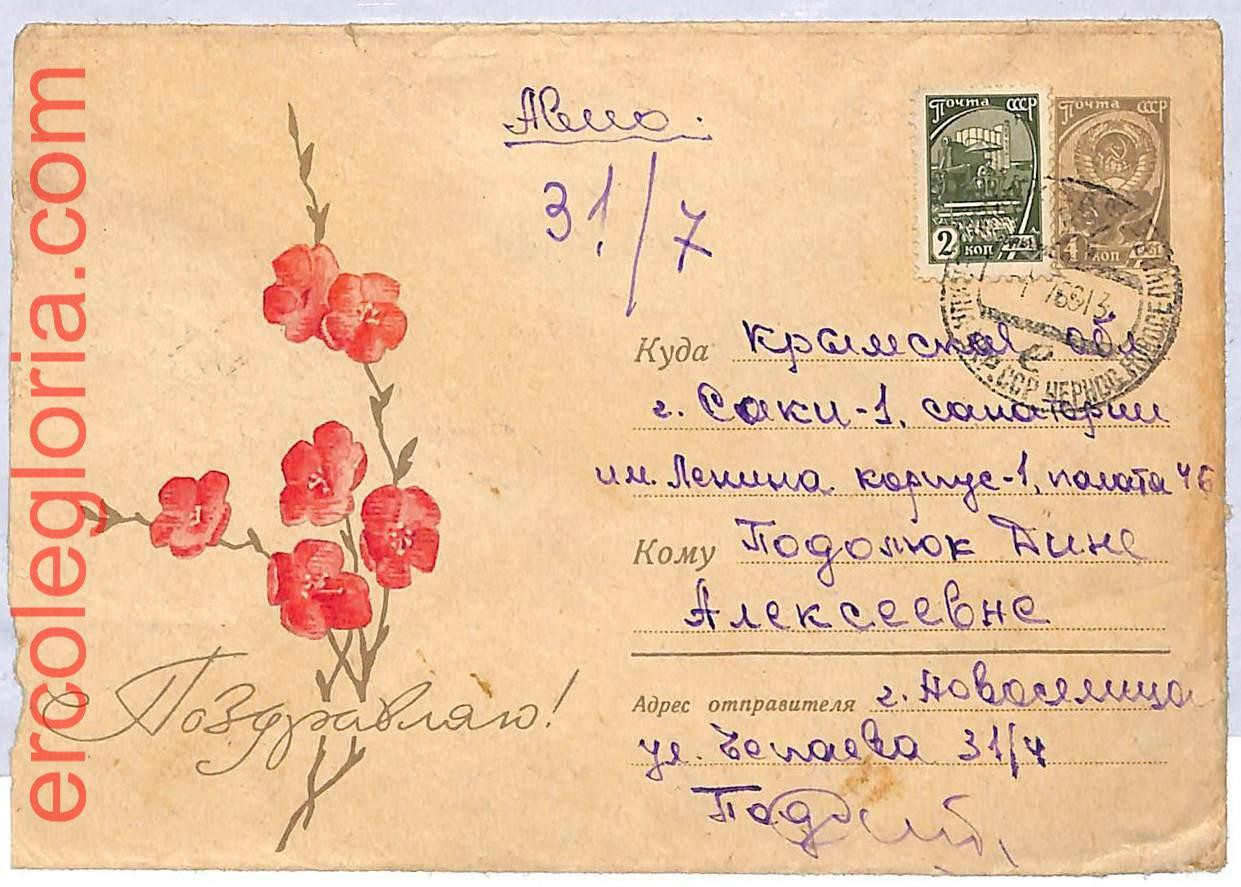 ercolegloria.com
Авиа.
31/7
Почта СССР
2 коп 1961
Почта СССР
4 коп 1961
Куда Крымская обл
г. Саки-1, санаторий
им. Ленина корпус-1, палата 46
Кому Подолюк Дине
Алексеевне
Поздравляю!
Адрес отправителя г. Новоселица
ул. Чепаева 31/4